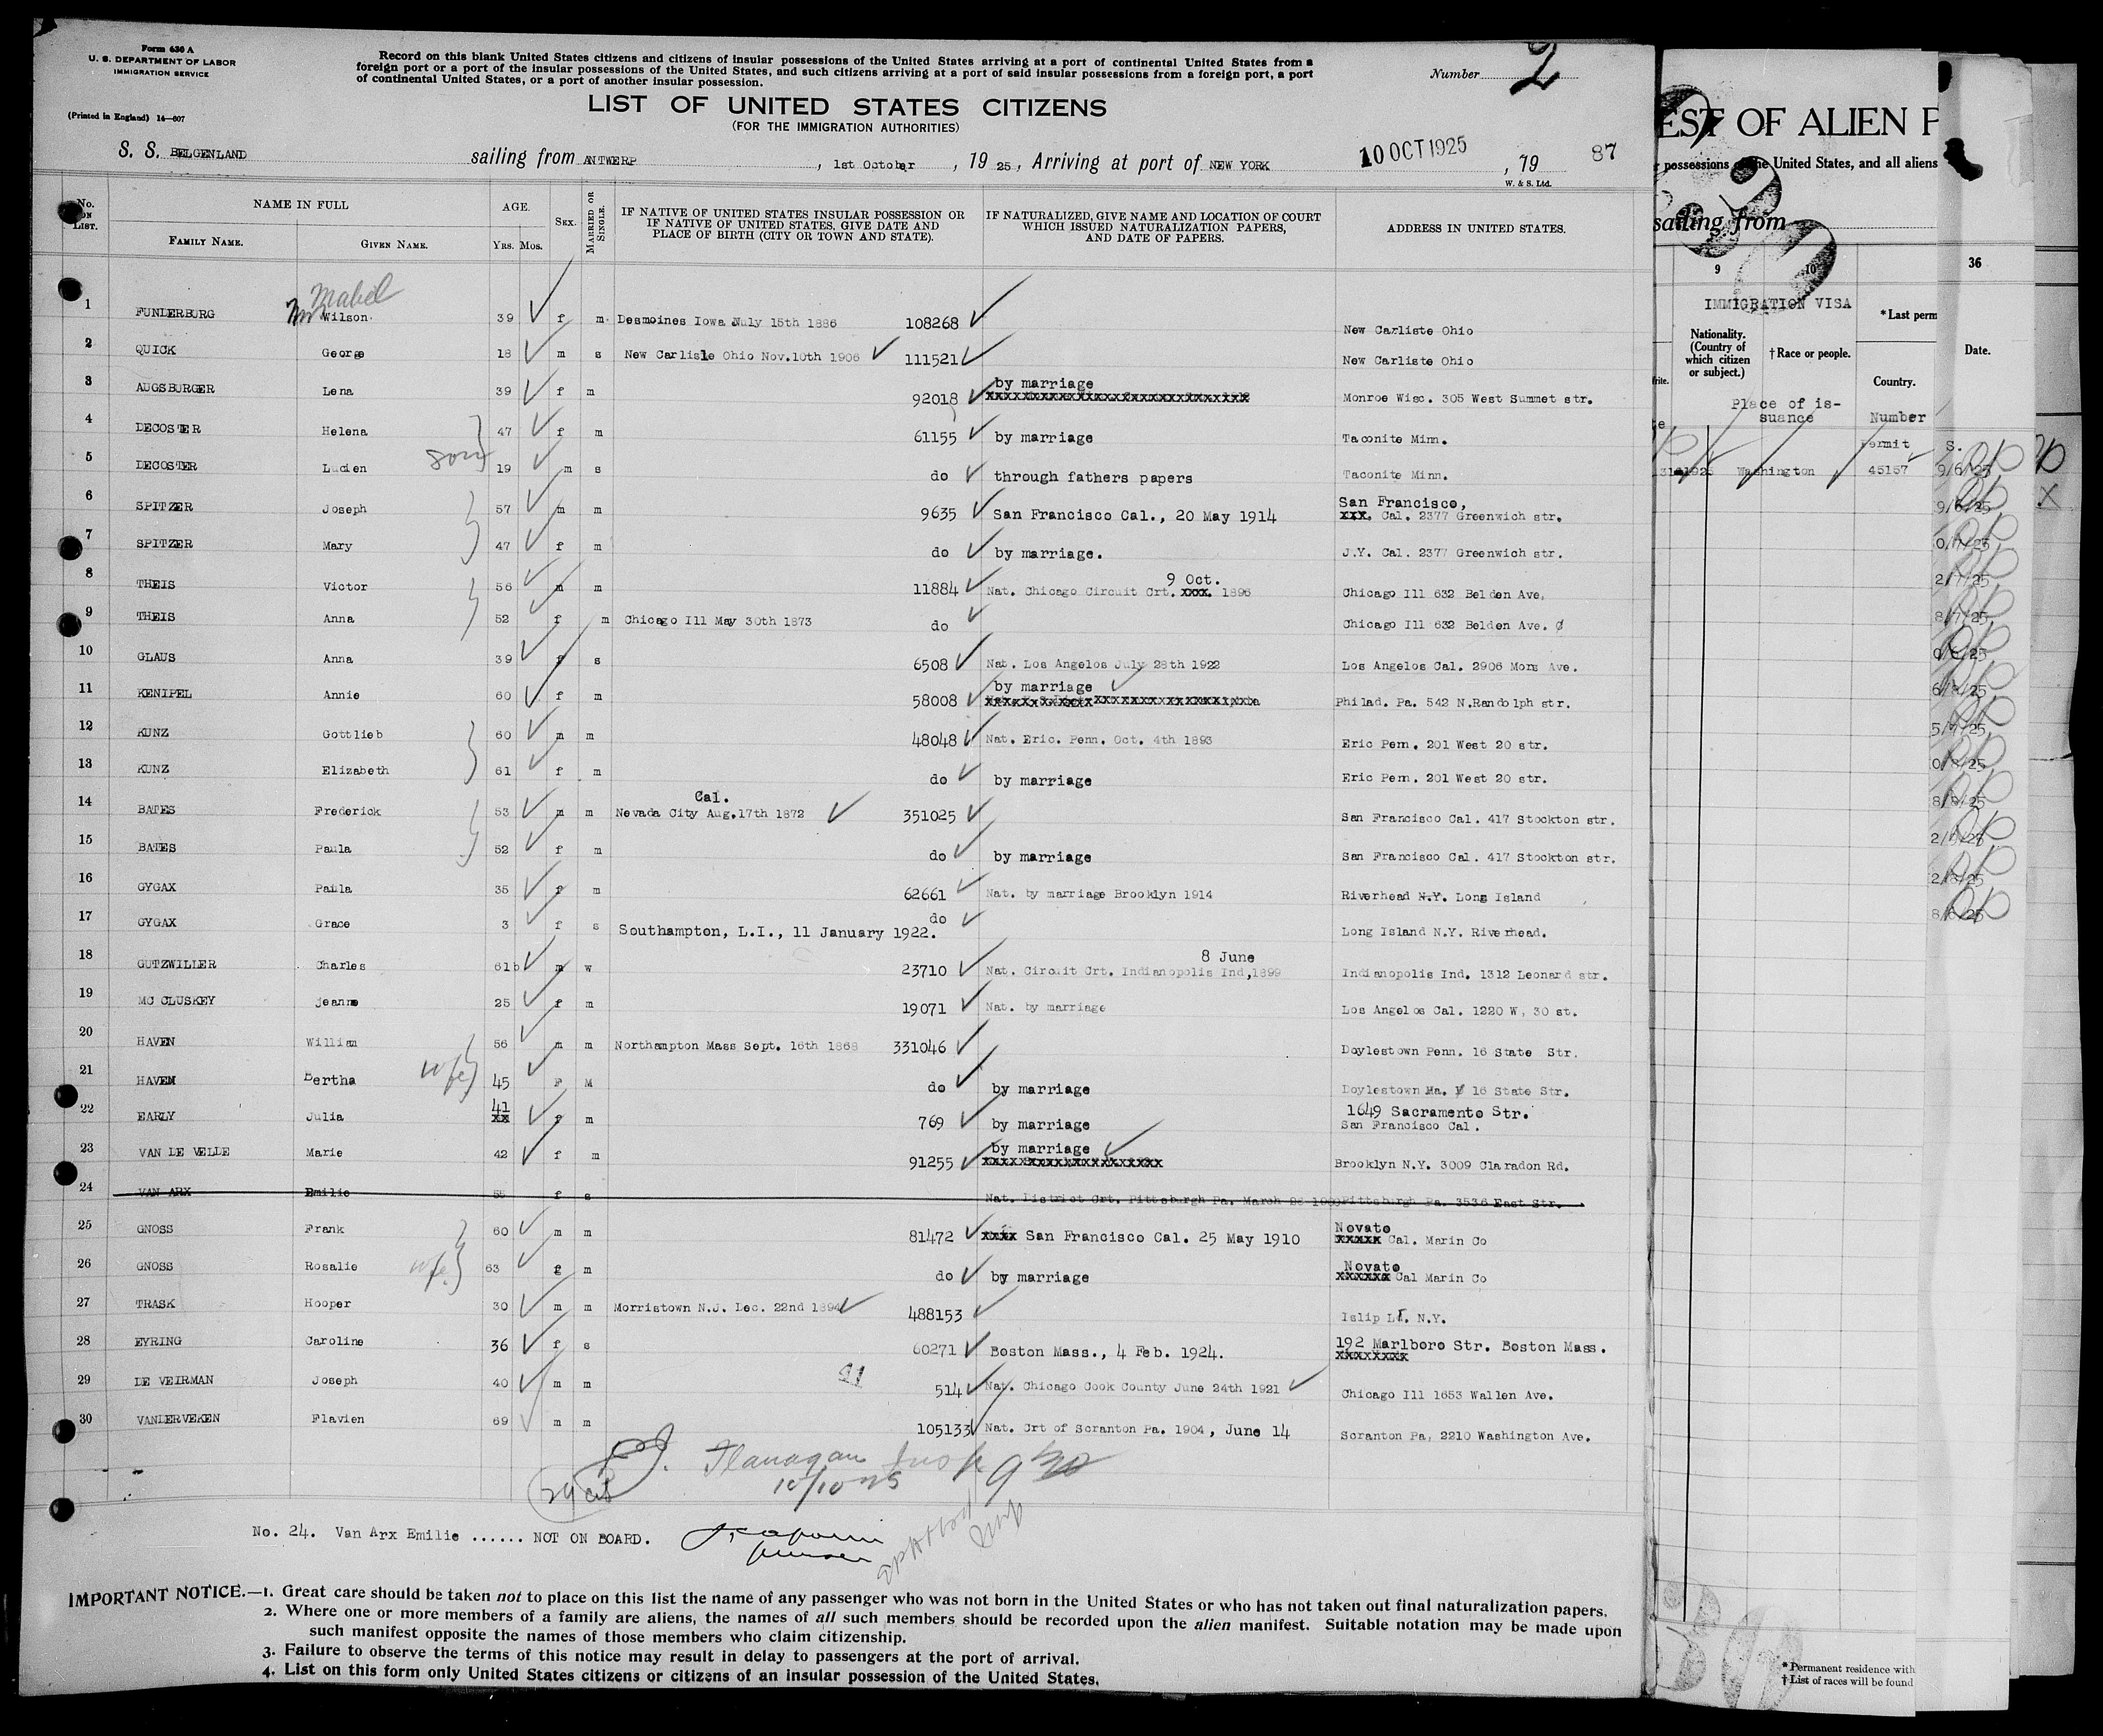 Form 630 A
U. S. DEPARTMENT OF LABOR
IMMIGRATION SERVICE
(Printed in England) 14—607
Record on this blank United States citizens and citizens of insular possessions of the United States arriving at a port of continental United States from a
foreign port or a port of the insular possessions of the United States, and such citizens arriving at a port of said insular possessions from a foreign port, a port
of continental United States, or a port of another insular possession.
Number 2
LIST OF UNITED STATES CITIZENS
(FOR THE IMMIGRATION AUTHORITIES)
S. S. BELGENLAND sailing from ANTWERP , 1st October , 19 25, Arriving at port of NEW YORK 10 OCT 1925 , 19 87
W. & S. Ltd.
No. ON LIST. NAME IN FULL FAMILY NAME. GIVEN NAME. AGE. YRS. MOS. SEX. MARRIED OR SINGLE. IF NATIVE OF UNITED STATES INSULAR POSSESSION OR IF NATIVE OF UNITED STATES, GIVE DATE AND PLACE OF BIRTH (CITY OR TOWN AND STATE). IF NATURALIZED, GIVE NAME AND LOCATION OF COURT WHICH ISSUED NATURALIZATION PAPERS, AND DATE OF PAPERS. ADDRESS IN UNITED STATES.
Mabel
1 FUNDERBURG Wilson 39 f m Desmoines Iowa July 15th 1886 108268 New Carliste Ohio
2 QUICK George 18 m s New Carlisle Ohio Nov.10th 1906 111521 New Carliste Ohio
3 AUGSBURGER Lena 39 f m 92018 by marriage Monroe Wisc. 305 West Summet str.
4 DECOSTER Helena 47 f m 61155 by marriage Taconite Minn.
5 DECOSTER Lucien son 19 m s do through fathers papers Taconite Minn.
6 SPITZER Joseph 57 m m 9635 San Francisco Cal., 20 May 1914 San Francisco, xxx. Cal. 2377 Greenwich str.
7 SPITZER Mary 47 f m do by marriage. J.Y. Cal. 2377 Greenwich str.
8 THEIS Victor 56 m m 11884 Nat. Chicago Circuit Crt. 9 Oct. xxxx. 1896 Chicago Ill 632 Belden Ave.
9 THEIS Anna 52 f m Chicago Ill May 30th 1873 do Chicago Ill 632 Belden Ave.
10 GLAUS Anna 39 f s 6508 Nat. Los Angelos July 28th 1922 Los Angelos Cal. 2906 Mons Ave.
11 KENIPEL Annie 60 f m 58008 by marriage Philad. Pa. 542 N.Randolph str.
12 KUNZ Gottlieb 60 m m 48048 Nat. Eric. Penn. Oct. 4th 1893 Eric Pem. 201 West 20 str.
13 KUNZ Elizabeth 61 f m do by marriage Eric Pem. 201 West 20 str.
14 BATES Frederick 53 m m Cal. Nevada City Aug.17th 1872 351025 San Francisco Cal. 417 Stockton str.
15 BATES Paula 52 f m do by marriage San Francisco Cal. 417 Stockton str.
16 GYGAX Paula 35 f m 62661 Nat. by marriage Brooklyn 1914 Riverhead N.Y. Long Island
17 GYGAX Grace 3 f s Southampton, L.I., 11 January 1922. do Long Island N.Y. Riverhead.
18 GUTZWILLER Charles 61 m w 23710 Nat. Circuit Crt. Indianopolis Ind, 8 June 1899 Indianopolis Ind. 1312 Leonard str.
19 MC CLUSKEY Jeanne 25 f m 19071 Nat. by marriage Los Angelos Cal. 1220 W. 30 st.
20 HAVEN William 56 m m Northampton Mass Sept. 16th 1868 331046 Doylestown Penn. 16 State Str.
21 HAVEN Bertha wife 45 F M do by marriage Doylestown Pa. 16 State Str.
22 EARLY Julia 41 xx f m 769 by marriage 1649 Sacramento Str. San Francisco Cal.
23 VAN DE VELDE Marie 42 f m 91255 by marriage Brooklyn N.Y. 3009 Claradon Rd.
24 VAN ARX Emilie 55 f s Nat. District Crt. Pittsburgh Pa. March Pittsburgh Pa. 3536 East Str.
25 GNOSS Frank 60 m m 81472 xxxx San Francisco Cal. 25 May 1910 Novato xxxxx Cal. Marin Co
26 GNOSS Rosalie wife 63 f m do by marriage Novato xxxxxx Cal Marin Co
27 TRASK Hooper 30 m m Morristown N.J. Dec. 22nd 1894 488153 Islip LI. N.Y.
28 EYRING Caroline 36 f s 60271 Boston Mass., 4 Feb. 1924. 192 Marlboro Str. Boston Mass. xxxxxxxx
29 DE VEIRMAN Joseph 40 m m 514 Nat. Chicago Cook County June 24th 1921 Chicago Ill 1653 Wallen Ave.
30 VANDERVEKEN Flavien 69 m m 105133 Nat. Crt of Scranton Pa. 1904, June 14 Scranton Pa, 2210 Washington Ave.
Flanagan Insp 9 30
10/10 25
29 cit
No. 24. Van Arx Emilie ...... NOT ON BOARD.
IMPORTANT NOTICE.—1. Great care should be taken not to place on this list the name of any passenger who was not born in the United States or who has not taken out final naturalization papers.
2. Where one or more members of a family are aliens, the names of all such members should be recorded upon the alien manifest. Suitable notation may be made upon
such manifest opposite the names of those members who claim citizenship.
3. Failure to observe the terms of this notice may result in delay to passengers at the port of arrival.
4. List on this form only United States citizens or citizens of an insular possession of the United States.
EST OF ALIEN P
possessions of the United States, and all aliens
sailing from
9 10 36
IMMIGRATION VISA
Nationality. (Country of which citizen or subject.)
† Race or people.
* Last perm
Country.
Date.
Place of is-
suance
Number
Permit S.
Washington 45157 9/6/25
* Permanent residence with
† List of races will be found